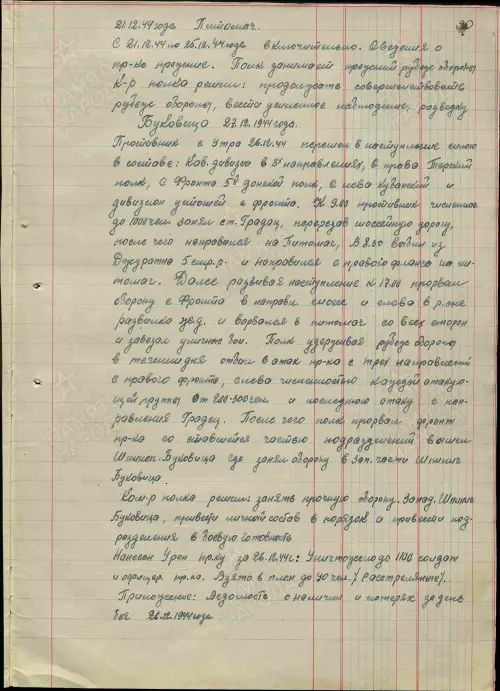 21.12.44 года Питомач.
С 21.12.44 по 25.12.44 года включительно. Сведения о
пр-ке прежние. Полк занимает прежний рубеж обороны,
К-р полка решил: продолжать совершенствовать
рубеж обороны, вести усиленное наблюдение, разведку
Буковица 27.12.1944 года.
Противник с утра 26.12.44 перешел в наступление силою
в составе: Кав. дивизии в 3х направлениях, с права Терский
полк, с фронта 5й донской полк, с лева Кубанский и
дивизион с фронта. К 9.00 противник численно
до 1000 чел. занял ст. Градац, перерезав шоссейную дорогу,
после чего направился на Питомач, в вышел из
5 и направился с правого фланга на пи-
томач. Далее развивая наступление к 17.00 прорвал
оборону с фронта в направл. шоссе и слева в р-оне
развилки жел. и ворвался в питомач со всех сторон
и завязал уличные бои. Полк удерживая рубеж обороны
в течении дня отбил атак пр-ка с трех направлений
с правого фронта, слева численностью каждой атакую-
щей группы от 200-300 чел и последнюю атаку с на-
правления Градец. После чего полк прорвал фронт
пр-ка со ставшейся частью подразделений вышел
Шпшич-Буковица где занял оборону в Зап. части Шпшич
Буковица.
Ком-р полка решил: занять прочную оборону. Запад. Шпшич
Буковица, привести личной состав в порядок и привести под-
разделения в боевую готовность
Нанесен Урон пр-ку за 26.12.44 г: Уничтожено до 1100 солдат
и офицер. пр-ка. Взято в плен до 40 чел. /Расстреляные/.
Приложение: Ведомость о наличии и потерях за день
боя 26.12.1944 года